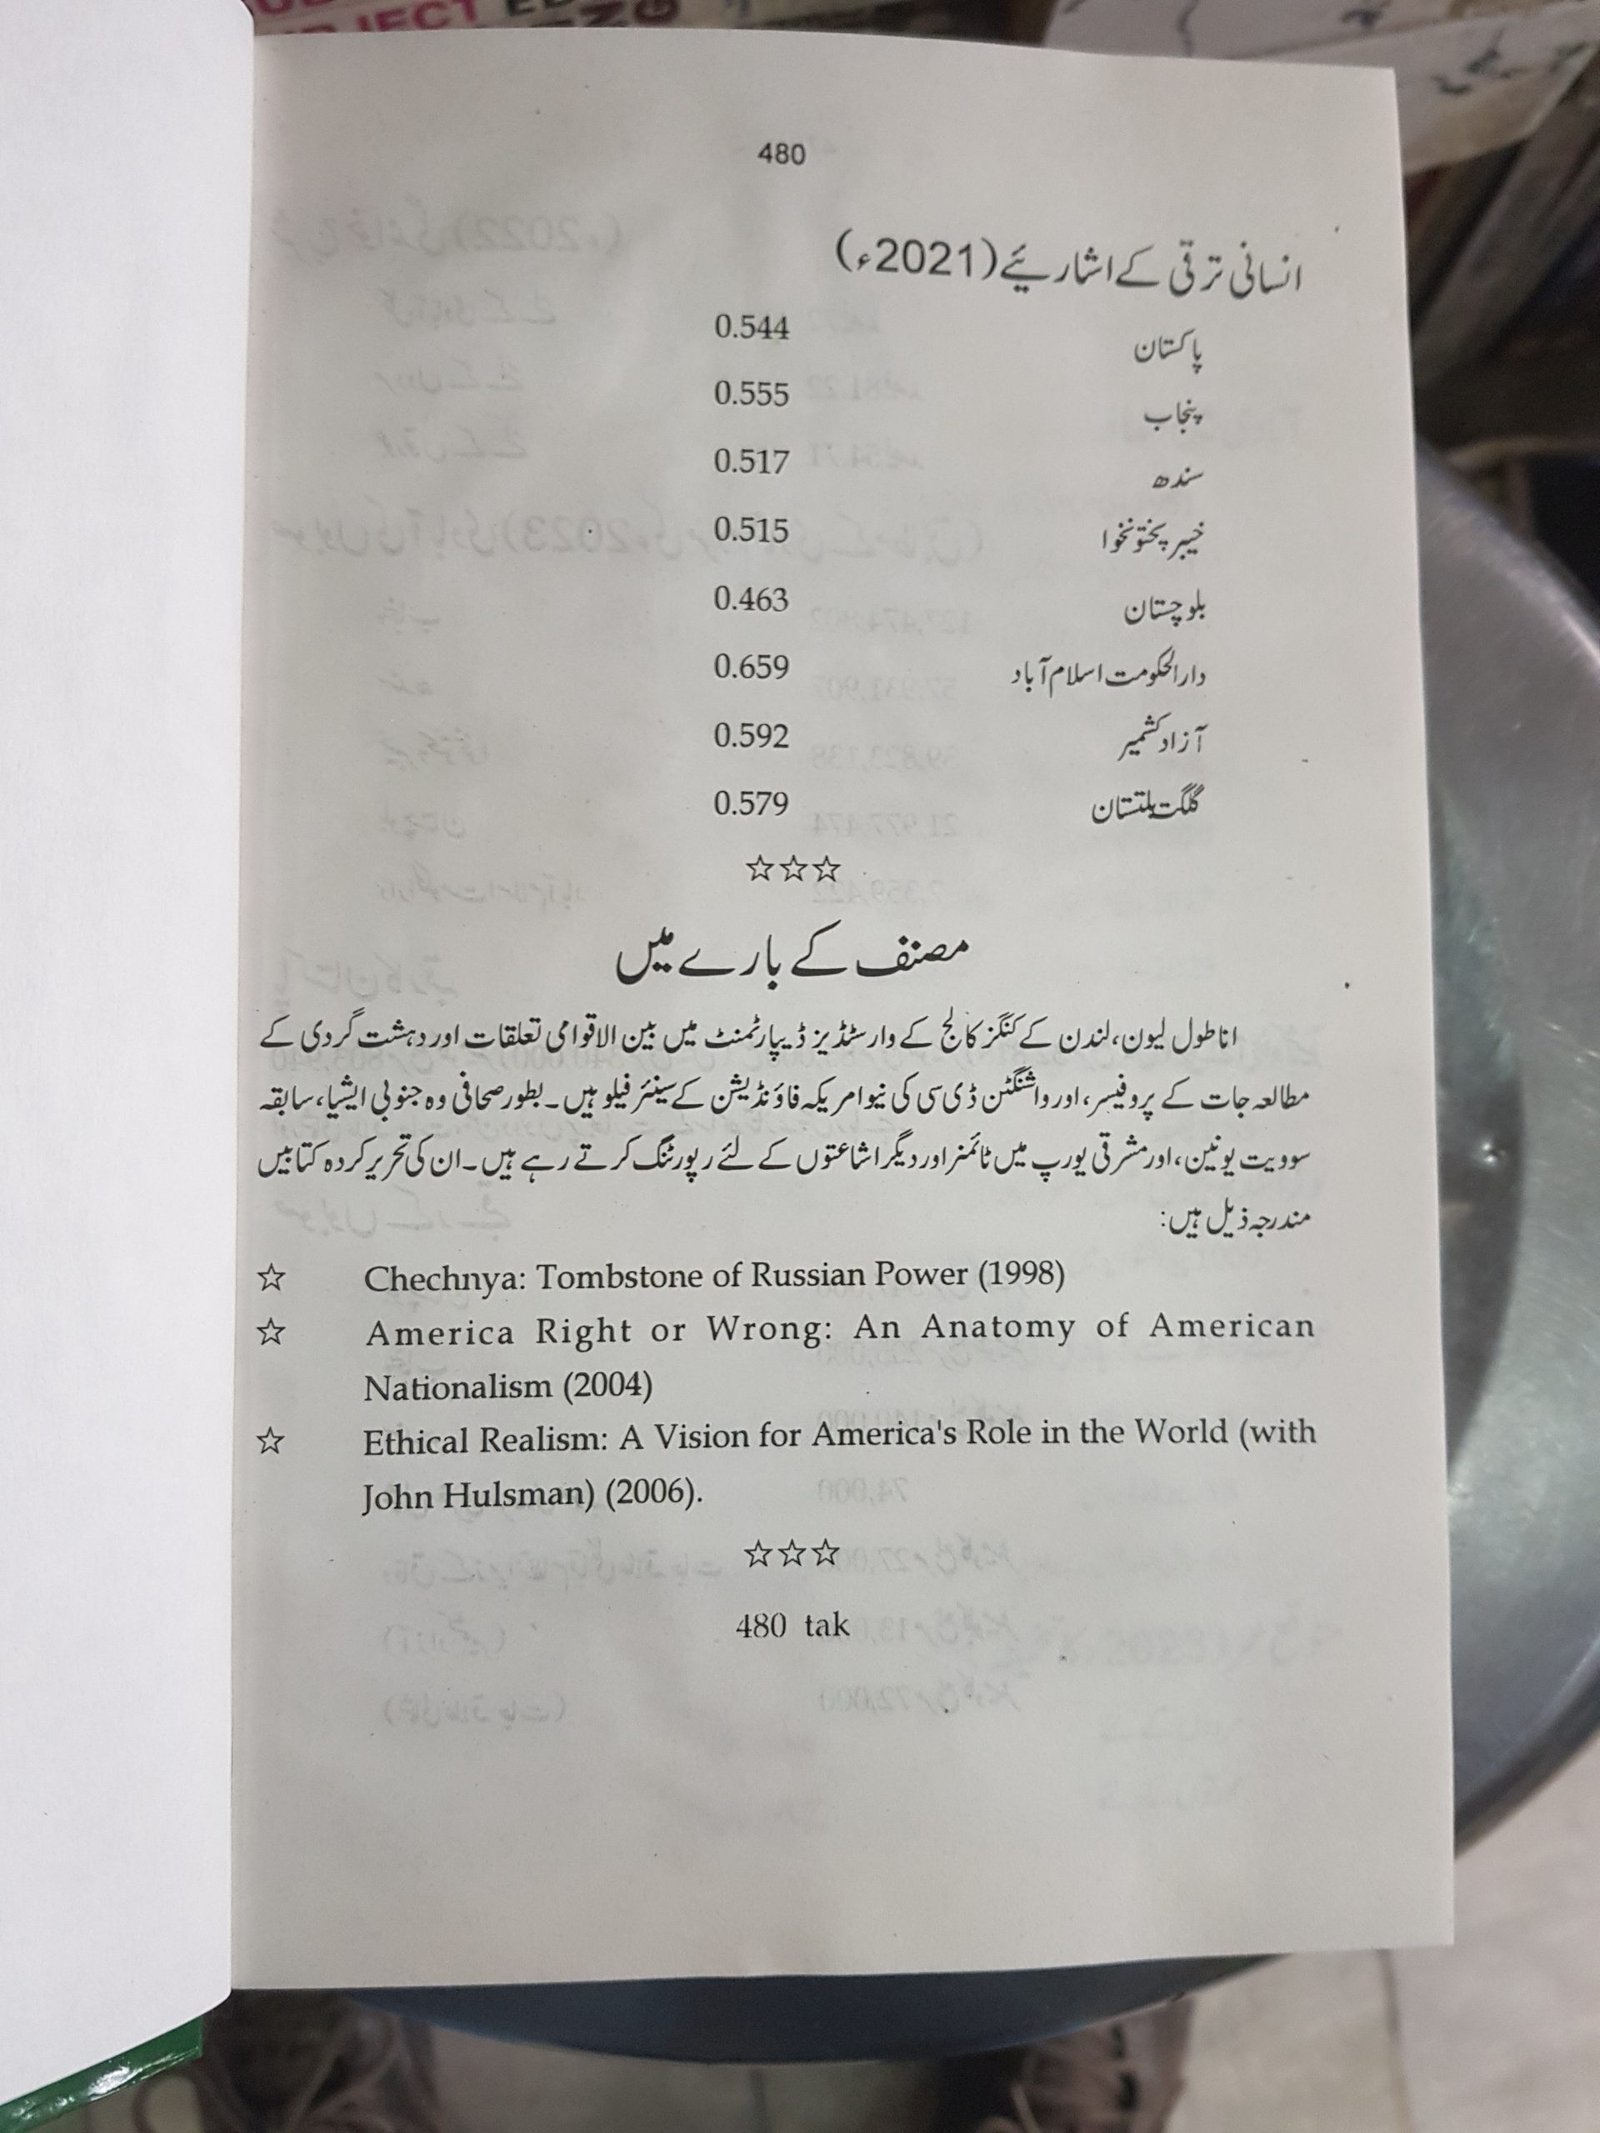 480
انسانی ترقی کے اشاریئے (2021ء)
پاکستان 0.544
پنجاب 0.555
سندھ 0.517
خیبر پختونخوا 0.515
بلوچستان 0.463
دارالحکومت اسلام آباد 0.659
آزاد کشمیر 0.592
گلگت بلتستان 0.579
☆☆☆
مصنف کے بارے میں
اناطول لیون، لندن کے کنگز کالج کے وار سٹڈیز ڈیپارٹمنٹ میں بین الاقوامی تعلقات اور دہشت گردی کے
مطالعہ جات کے پروفیسر، اور واشنگٹن ڈی سی کی نیو امریکہ فاؤنڈیشن کے سینئر فیلو ہیں۔ بطور صحافی وہ جنوبی ایشیا، سابقہ
سوویت یونین، اور مشرقی یورپ میں ٹائمنر اور دیگر اشاعتوں کے لئے رپورٹنگ کرتے رہے ہیں۔ ان کی تحریر کردہ کتابیں
مندرجہ ذیل ہیں:
☆ Chechnya: Tombstone of Russian Power (1998)
☆ America Right or Wrong: An Anatomy of American
Nationalism (2004)
☆ Ethical Realism: A Vision for America's Role in the World (with
John Hulsman) (2006).
☆☆☆
480 tak